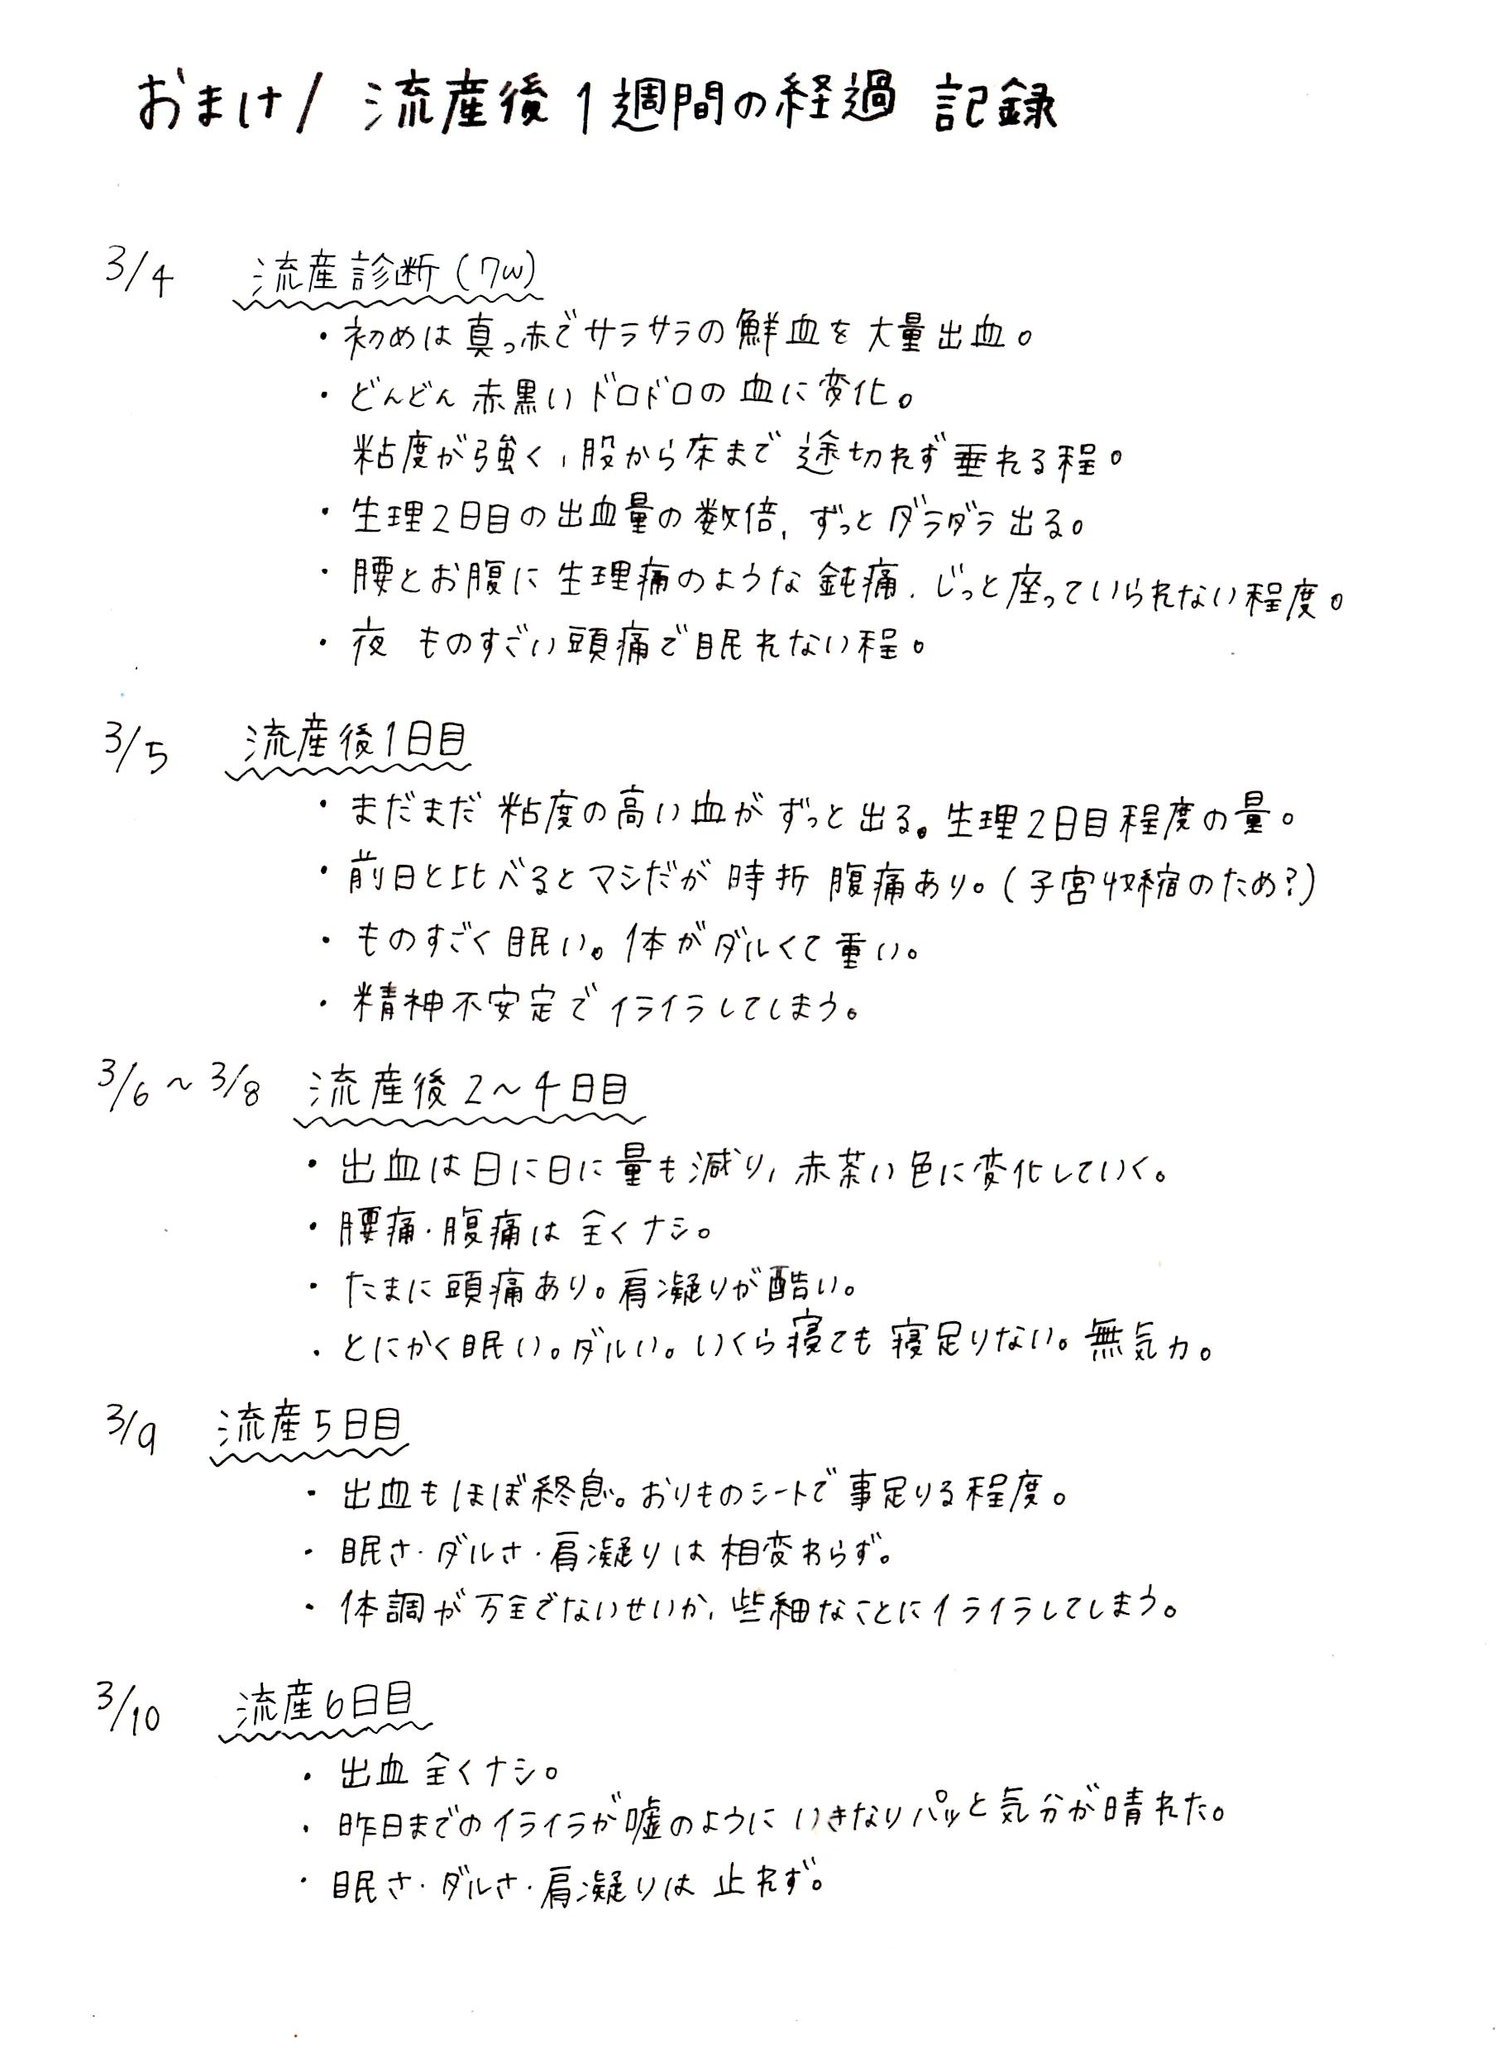 おまけ/ 流産後1週間の経過 記録
3/4 流産診断(7w)
・初めは真っ赤でサラサラの鮮血を大量出血。
・どんどん赤黒いドロドロの血に変化。
粘度が強く、股から床まで途切れず垂れる程。
・生理2日目の出血量の数倍、ずっとダラダラ出る。
・腰とお腹に生理痛のような鈍痛、じっと座っていられない程度。
・夜 ものすごい頭痛で眠れない程。
3/5 流産後1日目
・まだまだ粘度の高い血がずっと出る。生理2日目程度の量。
・前日と比べるとマシだが時折腹痛あり。(子宮収縮のため?)
・ものすごく眠い。体がダルくて重い。
・精神不安定でイライラしてしまう。
3/6〜3/8 流産後2〜4日目
・出血は日に日に量も減り、赤茶い色に変化していく。
・腰痛・腹痛は全くナシ。
・たまに頭痛あり。肩凝りが酷い。
・とにかく眠い。ダルい。いくら寝ても寝足りない。無気力。
3/9 流産5日目
・出血もほぼ終息。おりものシートで事足りる程度。
・眠さ・ダルさ・肩凝りは相変わらず。
・体調が万全でないせいか、些細なことにイライラしてしまう。
3/10 流産6日目
・出血全くナシ。
・昨日までのイライラが嘘のようにいきなりパッと気分が晴れた。
・眠さ・ダルさ・肩凝りは止れず。